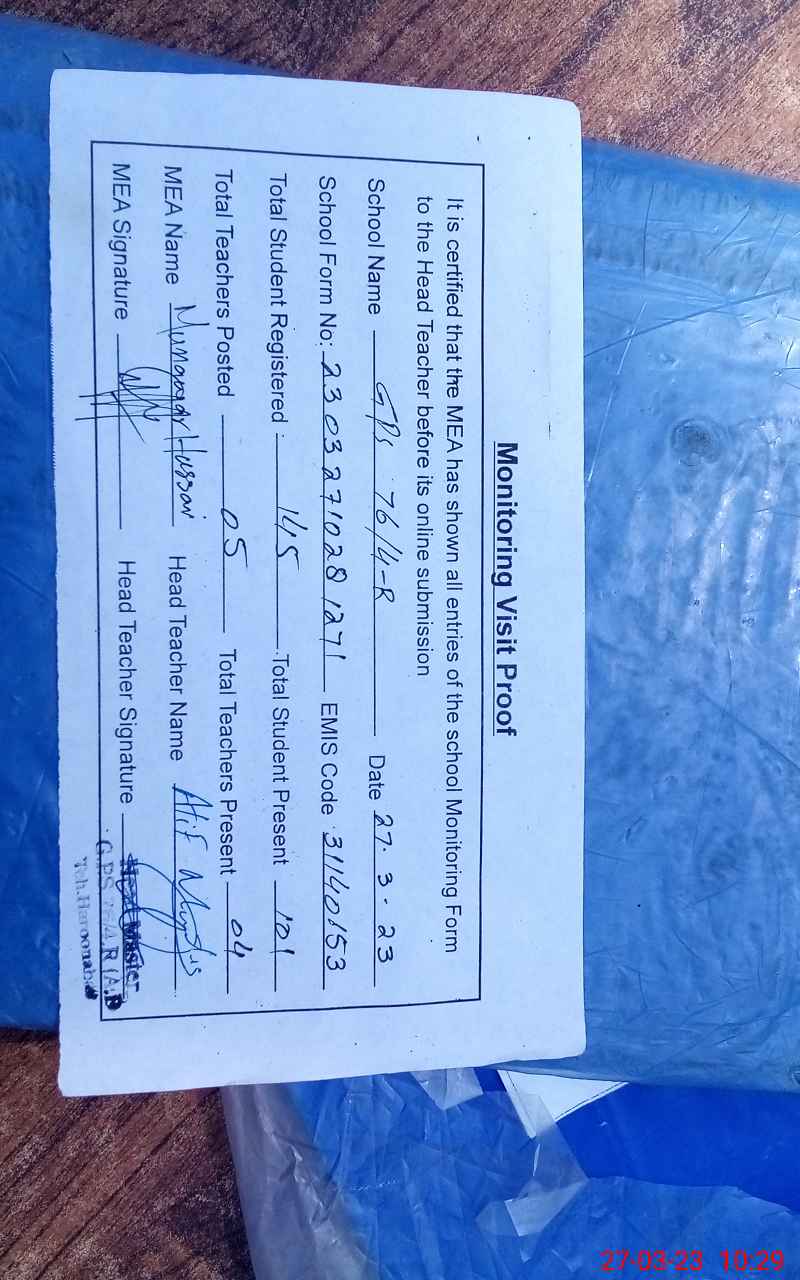 Monitoring Visit Proof
It is certified that the MEA has shown all entries of the school Monitoring Form
to the Head Teacher before its online submission
School Name GPS 76/4-R Date 27.3.23
School Form No: 2303271028 1271 EMIS Code 31140153
Total Student Registered : 145 Total Student Present 101
Total Teachers Posted 05 Total Teachers Present 04
MEA Name Hussain Head Teacher Name Atif
MEA Signature Head Teacher Signature
Head Master
G.P.S 76/4.R
Teh.Haroonabad
27-03-23 10:29